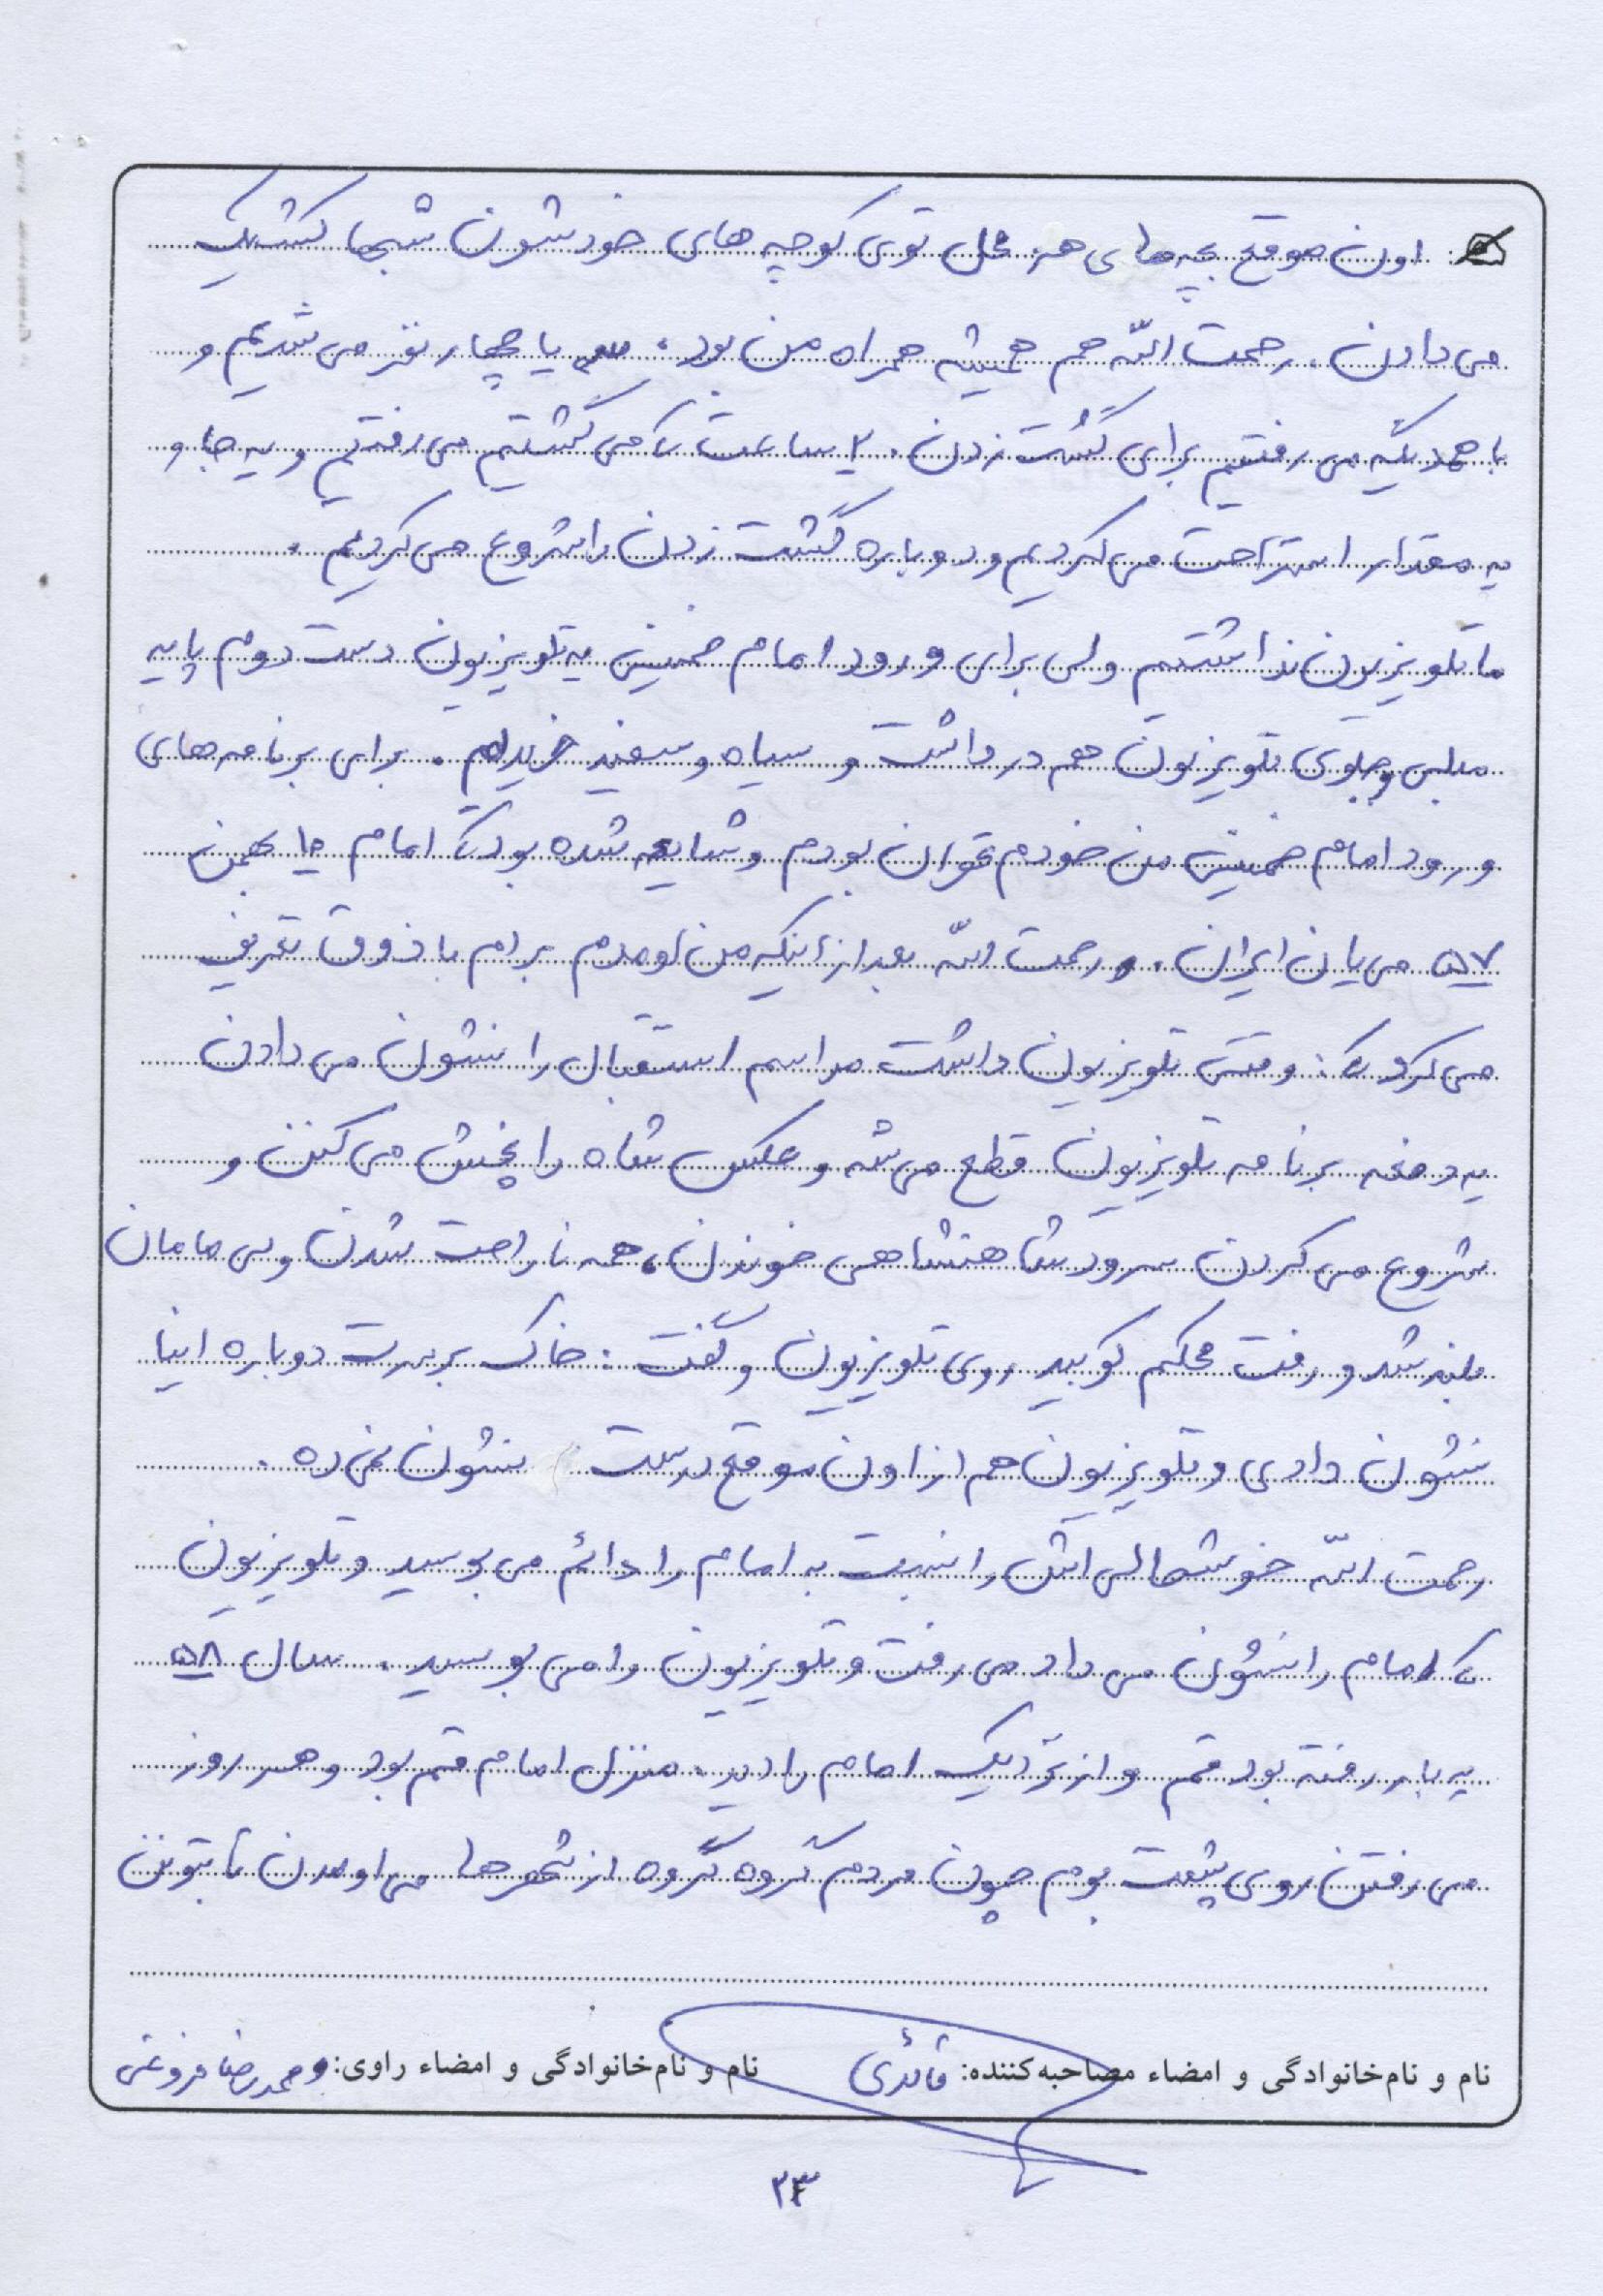 اون موقع بچه‌های هر محل توی کوچه‌های خودشون شبها کشیک
می‌دادن. رحمت الله هم همیشه همراه من بود. سه یا چهار نفر می‌شدیم و
با همدیگه می‌رفتیم برای گشت زدن. ۲ ساعت که می‌گشتیم می‌رفتیم و یه جا و
یه مقدار استراحت می‌کردیم و دوباره گشت زدن را شروع می‌کردیم.
ما تلویزیون نداشتیم ولی برای ورود امام خمینی یه تلویزیون دست دوم پایه
مبلی و جلوی تلویزیون هم در داشت و سیاه و سفید خریدیم. برای برنامه‌های
ورود امام خمینی من خودم تهران بودم و شایعه شده بود که امام ۱۰ بهمن
۵۷ می‌یان ایران. و رحمت الله بعد از اینکه من اومدم برام با ذوق تعریف
می‌کرد که: وقتی تلویزیون داشت مراسم استقبال را نشون می‌دادن
یه دفعه برنامه تلویزیون قطع می‌شه و عکس شاه را پخش می‌کنن و
شروع می‌کردن سرود شاهنشاهی خوندن، همه ناراحت شدن ولی مامان
بلند شد و رفت محکم کوبید روی تلویزیون و گفت: خاک بر سرت دوباره اینا
نشون دادی و تلویزیون هم از اون موقع درست نشون نمی‌ده.
رحمت الله خوشحالی‌اش را نسبت به امام را دائم می‌بوسید و تلویزیون
که امام را نشون می‌داد می‌رفت و تلویزیون را می‌بوسید. سال ۵۸
یه بار رفته بود قم و از نزدیک امام را دید. منزل امام قم بود و هر روز
می‌رفتن روی پشت بوم چون مردم گروه گروه از شهرها می‌اومدن تا بتونن
نام و نام‌خانوادگی و امضاء مصاحبه‌کننده: قائدی نام و نام‌خانوادگی و امضاء راوی: محمدرضا فروغی
۲۳